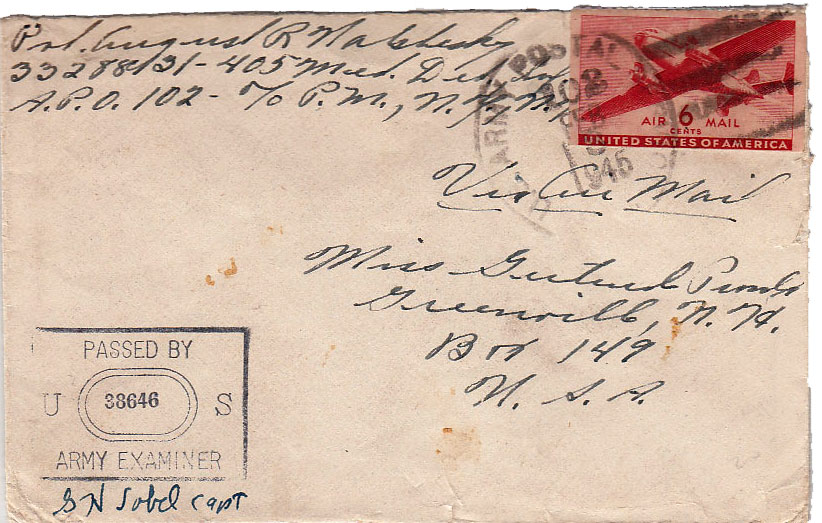 Pvt. August R
33288131-405 Med. Det.
A.P.O. 102- c/o P.M., N.Y., N.Y.
U.S. ARMY POSTAL
102
1945
AIR 6 MAIL
CENTS
UNITED STATES OF AMERICA
Via Air Mail
Miss Gertrude
Greenville, N.H.
Box 149
U. S. A.
PASSED BY
U 38646 S
ARMY EXAMINER
Sobel Capt